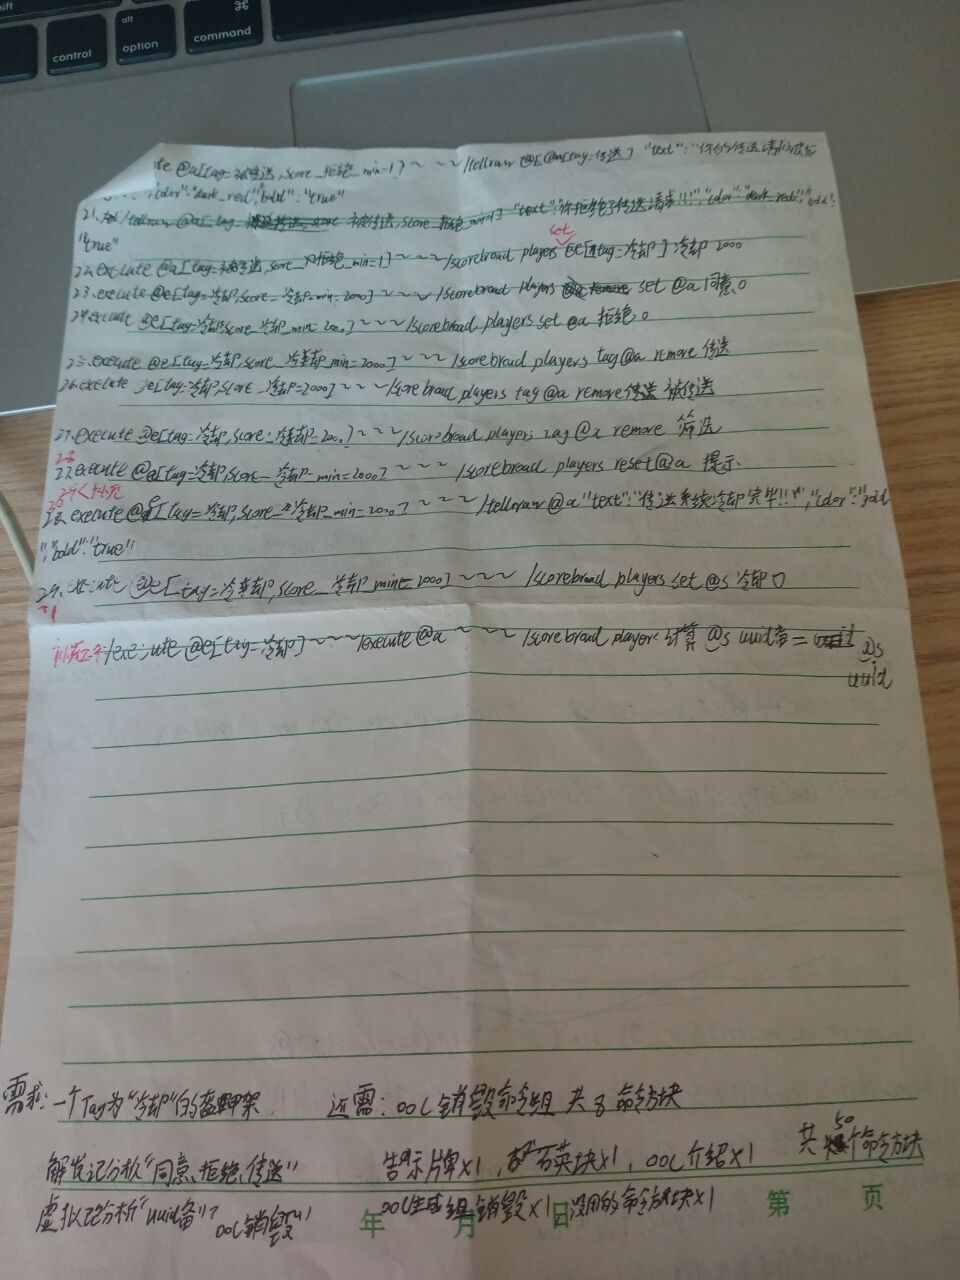 alt
control
option
⌘
command
te @a[tag=被传送,score_拒绝_min=1] ~ ~ ~ /tellraw @ 传送] "text":"你的传送请求被拒
"color":"dark_red""bold":"true"
21. /tellraw @a[tag= 被传送,score_拒绝_min=1] "text":"你拒绝了传送请求!!!","color":"dark_red","bold":
"true"
set
22.execute @a[tag=被传送,score_拒绝_min=1] ~ ~ ~ /scorebroad players @e[tag=冷却] 冷却 2000
23.execute @e[tag=冷却,score_冷却_min=2000] ~ ~ ~ /scorebroad players set @a 同意 0
24.execute @e[tag=冷却,score_冷却_min=2000] ~ ~ ~ /scorebroad players set @a 拒绝 0
25.execute @e[tag=冷却,score_冷却_min=2000] ~ ~ ~ /scorebroad players tag @a remove 传送
26.execute @e[tag=冷却,score_冷却=2000] ~ ~ ~ /scorebroad players tag @a remove 被传送
27.execute @e[tag=冷却,score_冷却=2000] ~ ~ ~ /scorebroad players tag @a remove 筛选
28
27.execute @e[tag=冷却,score_冷却_min=2000] ~ ~ ~ /scorebroad players reset @a 提示
29
30
28.execute @e[tag=冷却,score_冷却_min=2000] ~ ~ ~ /tellraw @a "text":"传送系统冷却完毕!!!","color":"gold
","bold":"true"
29.execute @e[tag=冷却,score_冷却_min=2000] ~ ~ ~ /scorebroad players set @s 冷却 0
31
/execute @e[tag=冷却] ~ ~ ~ /execute @a ~ ~ ~ /scorebroad players 计算 @s uuid备 = @s
uuid
需求:一个Tag为"冷却"的盔甲架 还需:OOC销毁命令组 共8命令方块
解发记分板"同意、拒绝、传送" 告示牌x1,石英块x1,OOC介绍x1 共50个命令方块
虚拟记分板"uuid备" OOC销毁 OOC生成组销毁x1 没用的命令方块x1
年 月 日 第 页